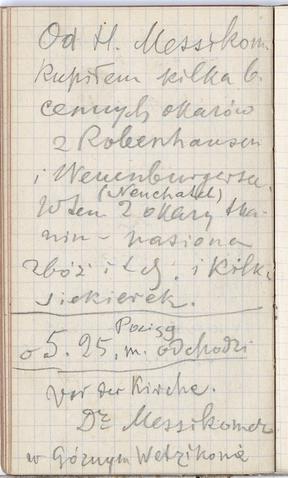 Od H. Messikom.
kupiłem kilka b.
cennych okazów
z Robenhausen
i Neuenburgersee.
(Neuchatel)
W tem 2 okazy tka-
nin - nasiona
zbóż i t.d. i kilk.
siekierek.
Pociąg
o 5.25.m. odchodzi
Vor der Kirche.
Dr Messikomer
w Górnym Wetzikonie